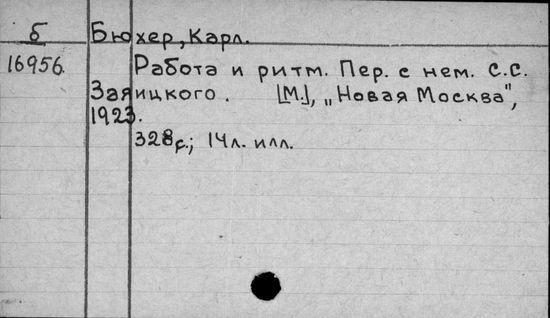 б Бюхер, Карл.
16956. Работа и ритм. Пер. с нем. С.С.
Заяицкого. [М.], „Новая Москва",
1923.
328с.; 14л. илл.